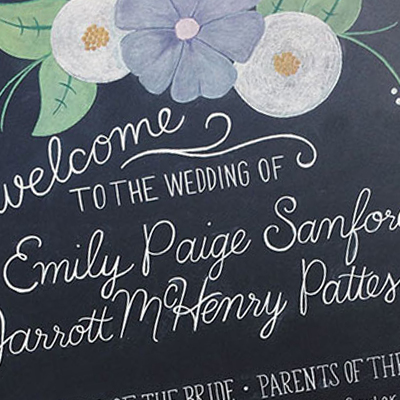 welcome
TO THE WEDDING OF
Emily Paige Sanford
Jarrott McHenry Pattes
OF THE BRIDE • PARENTS OF THE